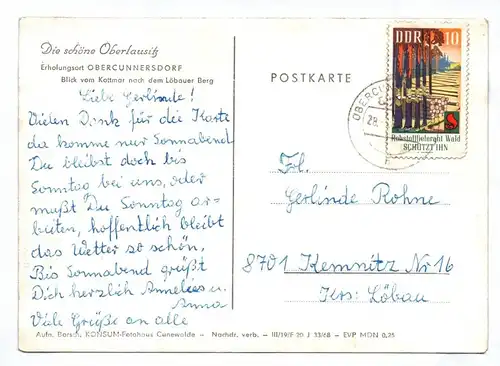 Die schöne Oberlausitz
Erholungsort OBERCUNNERSDORF
Blick vom Kottmar nach dem Löbauer Berg
Liebe Gerlinde!
Vielen Dank für die Karte
da komme nur Sonnabend
Du bleibst doch bis
Sonntag bei uns, oder
mußt Du Sonntag ar-
beiten, hoffentlich bleibt
das Wetter so schön.
Bis Sonnabend grüßt
Dich herzlich Annelies u.
Anna
Viele Grüße an alle
Aufn. Bersch, KONSUM-Fotohaus Cunewalde - Nachdr. verb. - III/19/F 20 J 33/68 - EVP MDN 0,25
POSTKARTE
DDR 10
Rohstofflieferant Wald
SCHÜTZT IHN
OBERCUN
28.
Frl.
Gerlinde Rohne
8701 Kemnitz Nr 16
Krs: Löbau